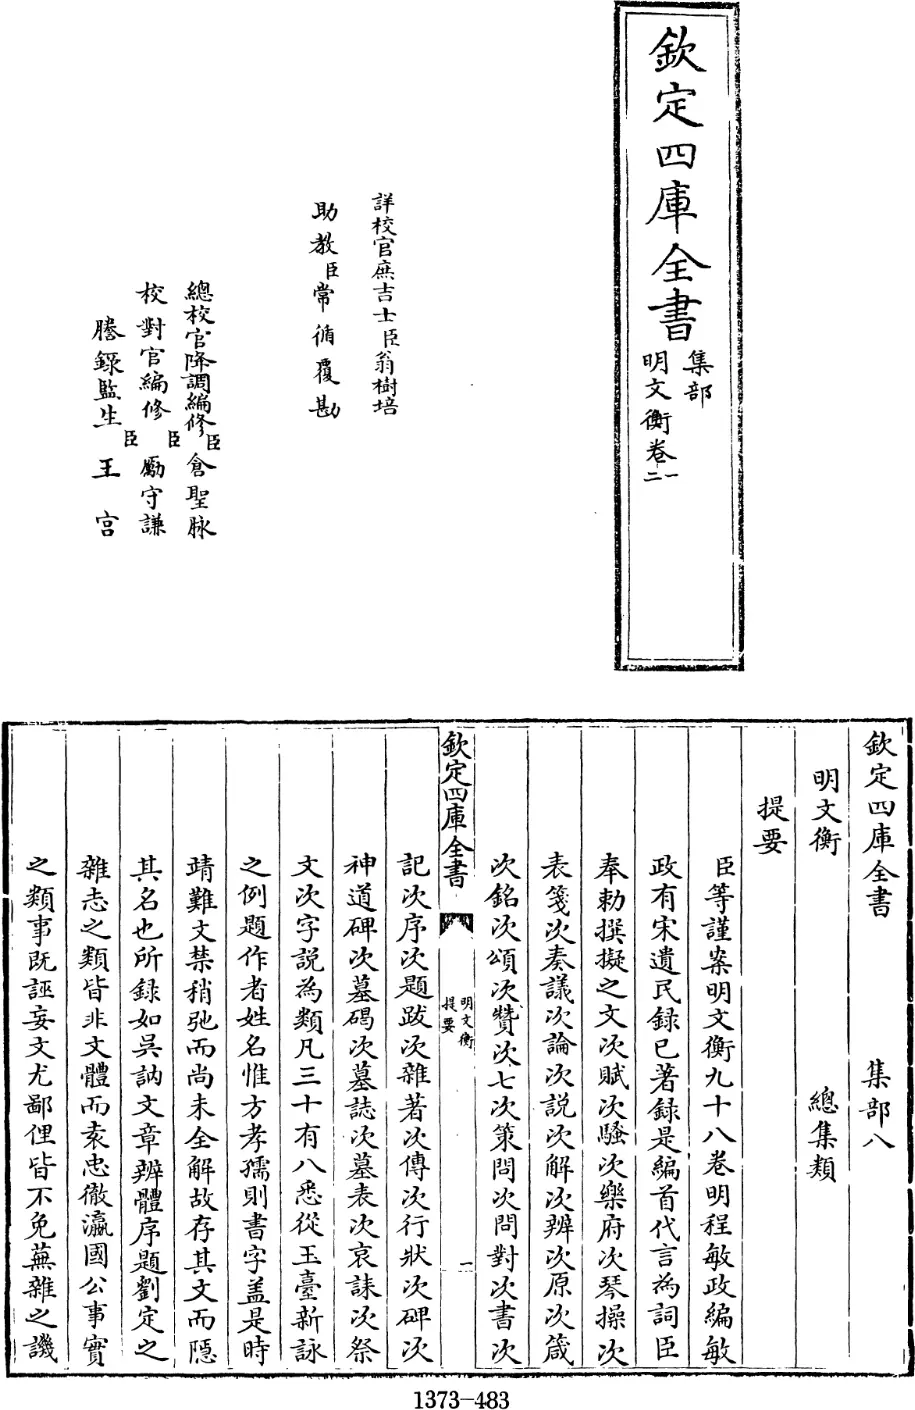 欽定四庫全書
集部
明文衡卷一
二
詳校官庶吉士臣翁樹培
助教臣常循覆勘
總校官降調編修臣倉聖脉
校對官編修臣勵守謙
謄錄監生臣王宫
欽定四庫全書 集部八
明文衡 總集類
提要
臣等謹案明文衡九十八卷明程敏政編敏
政有宋遺民録已著録是編首代言為詞臣
奉勅撰擬之文次賦次騷次樂府次琴操次
表箋次奏議次論次説次解次辨次原次箴
次銘次頌次贊次七次策問次問對次書次
欽定四庫全書
明文衡
提要
一
記次序次題跋次雜著次傳次行狀次碑次
神道碑次墓碣次墓誌次墓表次哀誄次祭
文次字説為類凡三十有八悉從玉臺新詠
之例題作者姓名惟方孝孺則書字盖是時
靖難文禁稍弛而尚未全解故存其文而隱
其名也所録如吴訥文章辨體序題劉定之
雜志之類皆非文體而袁忠徹瀛國公事實
之類事既誣妄文尤鄙俚皆不免蕪雜之譏
1373-483